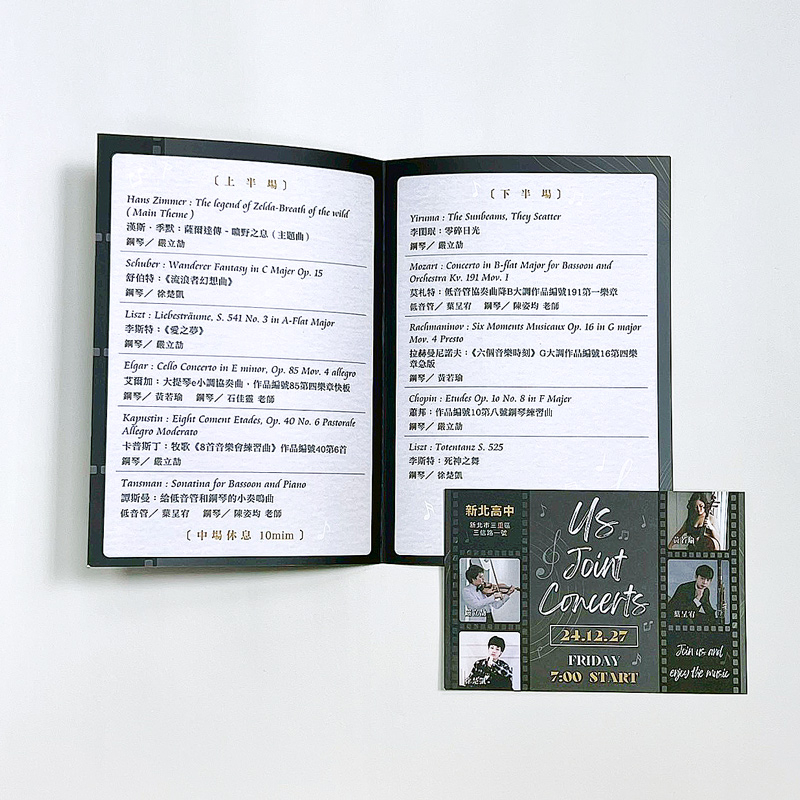 〔上半場〕
Hans Zimmer : The legend of Zelda-Breath of the wild
( Main Theme )
漢斯·季默：薩爾達傳 - 曠野之息（主題曲）
鋼琴／ 嚴立劼
Schuber : Wanderer Fantasy in C Major Op. 15
舒伯特：《流浪者幻想曲》
鋼琴／ 徐楚凱
Liszt : Liebesträume, S. 541 No. 3 in A-Flat Major
李斯特：《愛之夢》
鋼琴／ 嚴立劼
Elgar : Cello Concerto in E minor, Op. 85 Mov. 4 allegro
艾爾加：大提琴e小調協奏曲，作品編號85第四樂章快板
鋼琴／ 黃若瑜 鋼琴／ 石佳靈 老師
Kapustin : Eight Coment Etades, Op. 40 No. 6 Pastorale
Allegro Moderato
卡普斯丁：牧歌《8首音樂會練習曲》作品編號40第6首
鋼琴／ 嚴立劼
Tansman : Sonatina for Bassoon and Piano
譚斯曼：給低音管和鋼琴的小奏鳴曲
低音管／ 葉呈宥 鋼琴／ 陳姿均 老師
〔中場休息 10mim〕
〔下半場〕
Yiruma : The Sunbeams, They Scatter
李閏珉：零碎日光
鋼琴／ 嚴立劼
Mozart : Concerto in B-flat Major for Bassoon and
Orchestra Kv. 191 Mov. 1
莫札特：低音管協奏曲降B大調作品編號191第一樂章
低音管／ 葉呈宥 鋼琴／ 陳姿均 老師
Rachmaninov : Six Moments Musicaux Op. 16 in G major
Mov. 4 Presto
拉赫曼尼諾夫：《六個音樂時刻》G大調作品編號16第四樂
章急版
鋼琴／ 黃若瑜
Chopin : Etudes Op. 10 No. 8 in F Major
蕭邦：作品編號10第八號鋼琴練習曲
鋼琴／ 嚴立劼
Liszt : Totentanz S. 525
李斯特：死神之舞
鋼琴／ 徐楚凱
新北高中
新北市三重區
三信路一號
Us
Joint
Concerts
24.12.27
FRIDAY
7:00 START
徐楚凱
黃若瑜
葉呈宥
Join us and
enjoy the music